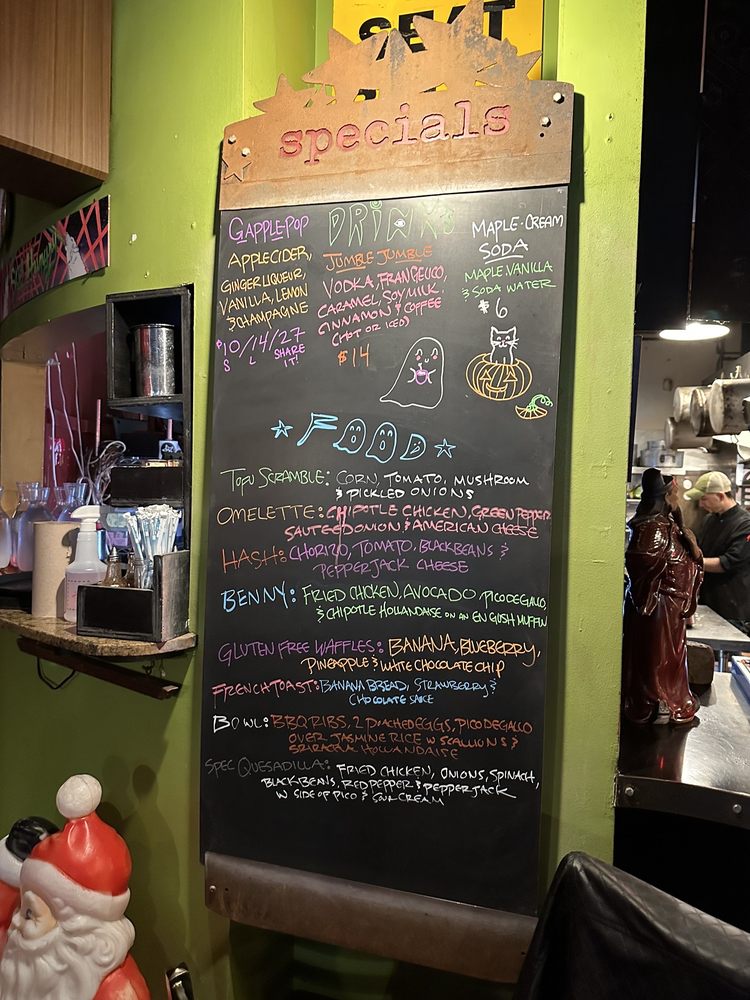 SEAT
specials
DRINKS
GAPPLEPOP
APPLE CIDER,
GINGER LIQUEUR,
VANILLA, LEMON
& CHAMPAGNE
$10/14/27
S L SHARE IT!
JUMBLE JUMBLE
VODKA, FRANGELICO,
CARAMEL, SOY MILK,
CINNAMON & COFFEE
(HOT OR ICED)
$14
MAPLE-CREAM
SODA
MAPLE, VANILLA
& SODA WATER
$6
FOOD
TOFU SCRAMBLE: CORN, TOMATO, MUSHROOM
& PICKLED ONIONS
OMELETTE: CHIPOTLE CHICKEN, GREEN PEPPER
SAUTEED ONION & AMERICAN CHEESE
HASH: CHORIZO, TOMATO, BLACK BEANS &
PEPPERJACK CHEESE
BENNY: FRIED CHICKEN, AVOCADO, PICO DE GALLO,
& CHIPOTLE HOLLANDAISE ON AN ENGLISH MUFFIN
GLUTEN FREE WAFFLES: BANANA, BLUEBERRY,
PINEAPPLE & WHITE CHOCOLATE CHIP
FRENCH TOAST: BANANA BREAD, STRAWBERRY &
CHOCOLATE SAUCE
BOWL: BBQ RIBS, 2 POACHED EGGS, PICO DE GALLO
OVER JASMINE RICE W SCALLIONS &
SRIRACHA HOLLANDAISE
SPEC QUESADILLA: FRIED CHICKEN, ONIONS, SPINACH,
BLACK BEANS, RED PEPPER & PEPPERJACK
W SIDE OF PICO & SOUR CREAM